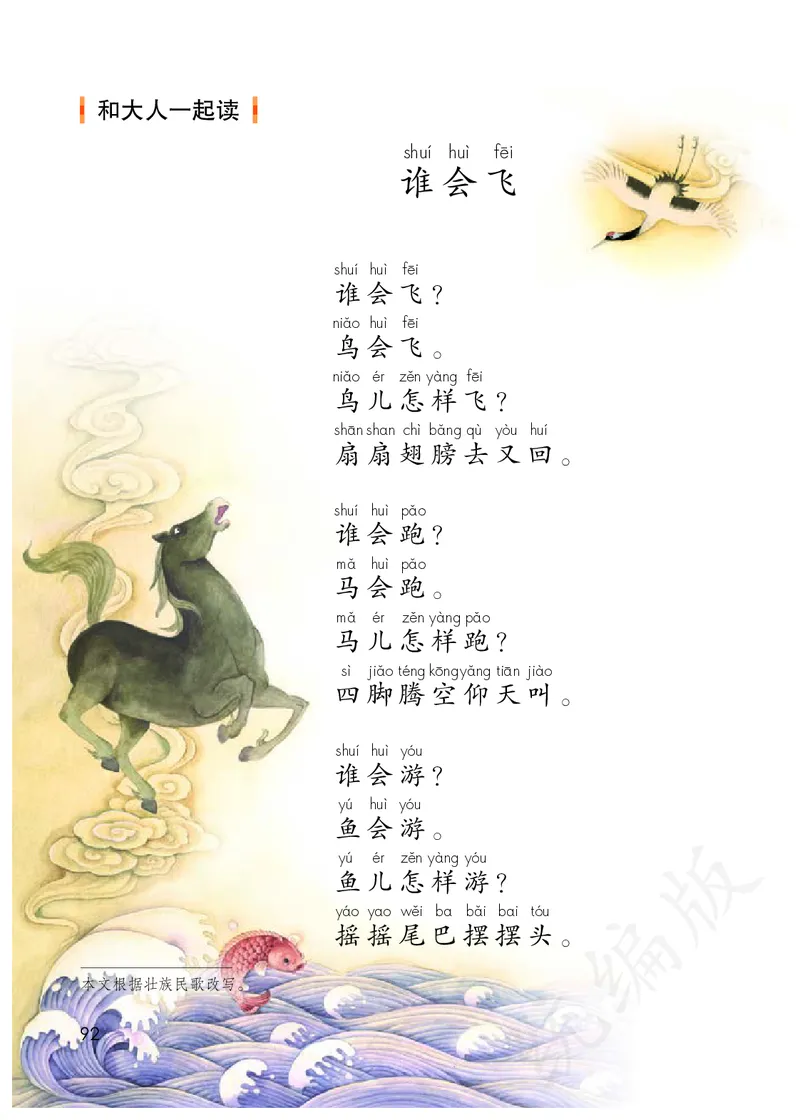 和大人一起读
shuí huì fēi
谁会飞
shuí huì fēi
谁会飞?
niǎo huì fēi
鸟会飞。
niǎo ér zěn yàng fēi
鸟儿怎样飞?
shān shan chì bǎng qù yòu huí
扇扇翅膀去又回。
shuí huì pǎo
谁会跑?
mǎ huì pǎo
马会跑。
mǎ ér zěn yàng pǎo
马儿怎样跑?
sì jiǎo téng kōng yǎng tiān jiào
四脚腾空仰天叫。
shuí huì yóu
谁会游?
yú huì yóu
鱼会游。
yú ér zěn yàng yóu
鱼儿怎样游?
yáo yao wěi ba bǎi bai tóu
摇摇尾巴摆摆头。
本文根据壮族民歌改写。
92
统编版